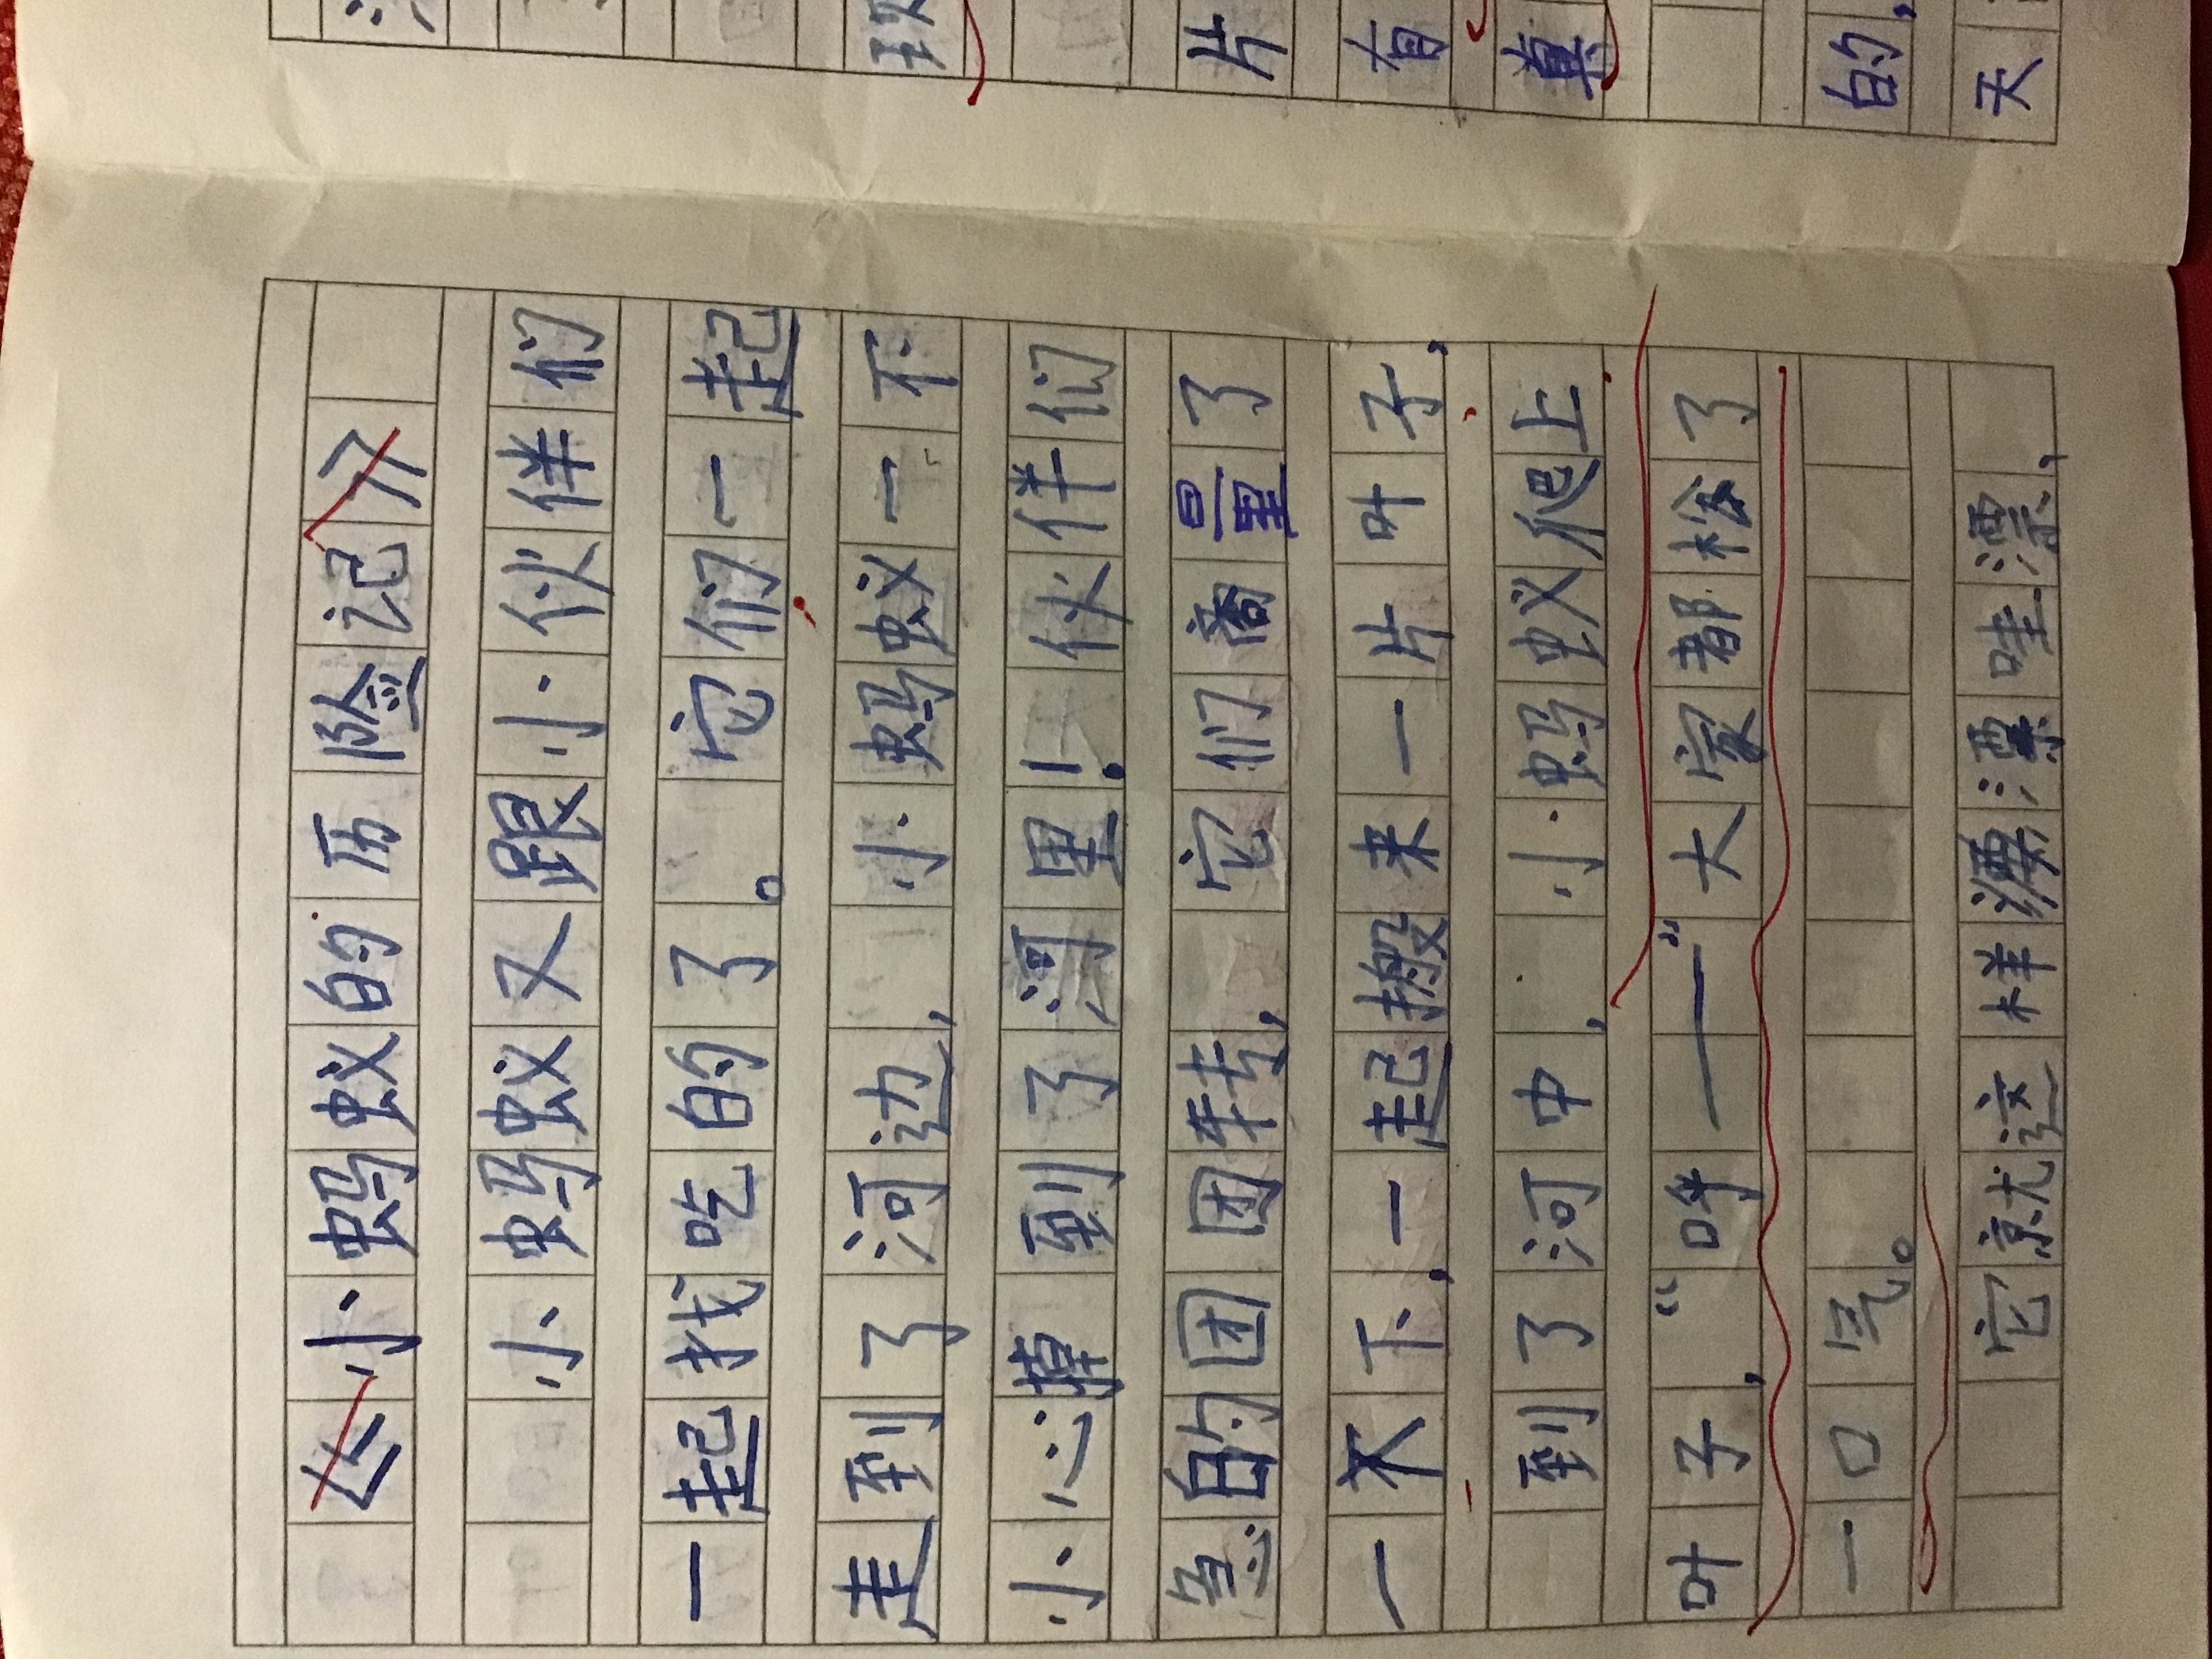 《小蚂蚁的历险记》
小蚂蚁又跟小伙伴们
一起找吃的了。它们一起
走到了河边,小蚂蚁一不
小心掉到了河里!伙伴们
急的团团转,它们商量了
一下,一起搬来一片叶子,
到了河中,小蚂蚁爬上
叶子,“呼——”大家都松了
一口气。
它就这样漂漂哇漂,
玩
片
有
真
的,
天